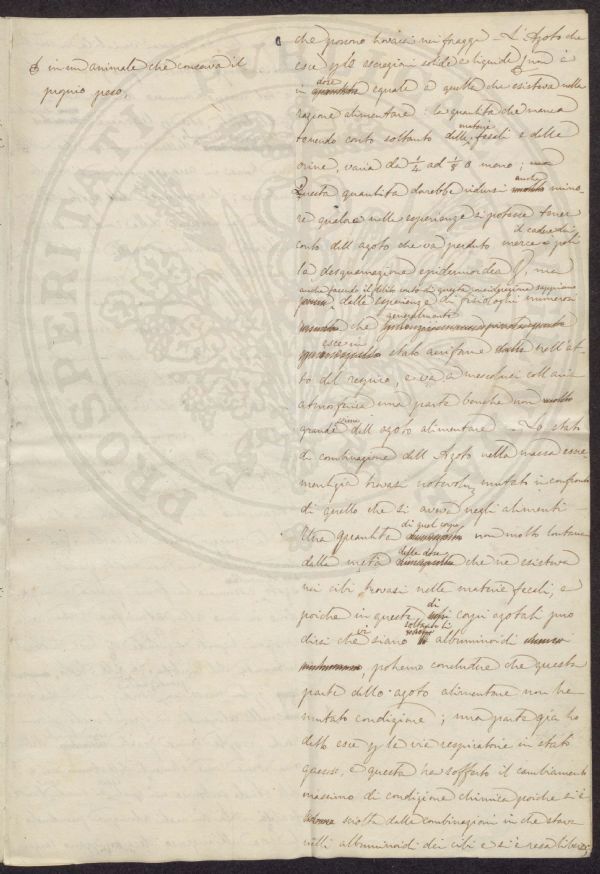 PRO VERITATE PUBLICO
in un animale che conserva il
proprio peso,
che possono trovarsi nei foraggi. L'Azoto che
esce p le secrezioni solide e liquide non è
in dose eguale a quella che esisteva nella
razione alimentare: la quantità che manca
tenendo conto soltanto delle materie fecali e delle
orine, varia da 1/4 ad 1/8 o meno;
Questa quantità dovrebbe ridursi anche mino-
re qualora nelle esperienze si potesse tener
conto dell'azoto che va perduto il cadere di
la desquamazione epidermoidea, ma
anche facendo il debito conto di questa sappiamo
dalle esperienze di fisiologhi numerosi
che generalmente
esce in stato aeriforme nell'at-
to del respiro, e va a mescolarsi coll'aria
atmosferica una parte benchè non
grandissima dell'azoto alimentare. Lo stato
di combinazione dell'Azoto nella massa escre-
mentizia trovasi mutato in confronto
di quello che si aveva negli alimenti.
Una quantità di quel corpo non molto lontana
dalla metà della dose che ne esisteva
nei cibi trovasi nelle materie fecali, e
poichè in queste di corpi azotati può
dirsi che vi siano soltanto li albuminoidi
, potremo concludere che questa
parte dello azoto alimentare non ha
mutato condizione; una parte già ho
detto esce p le vie respiratorie in stato
gassoso, e questa ha sofferto il cambiamento
massimo di condizione chimica poichè si è
sciolta dalle combinazioni in che stava
nelli albuminoidi dei cibi e si è resa libera;